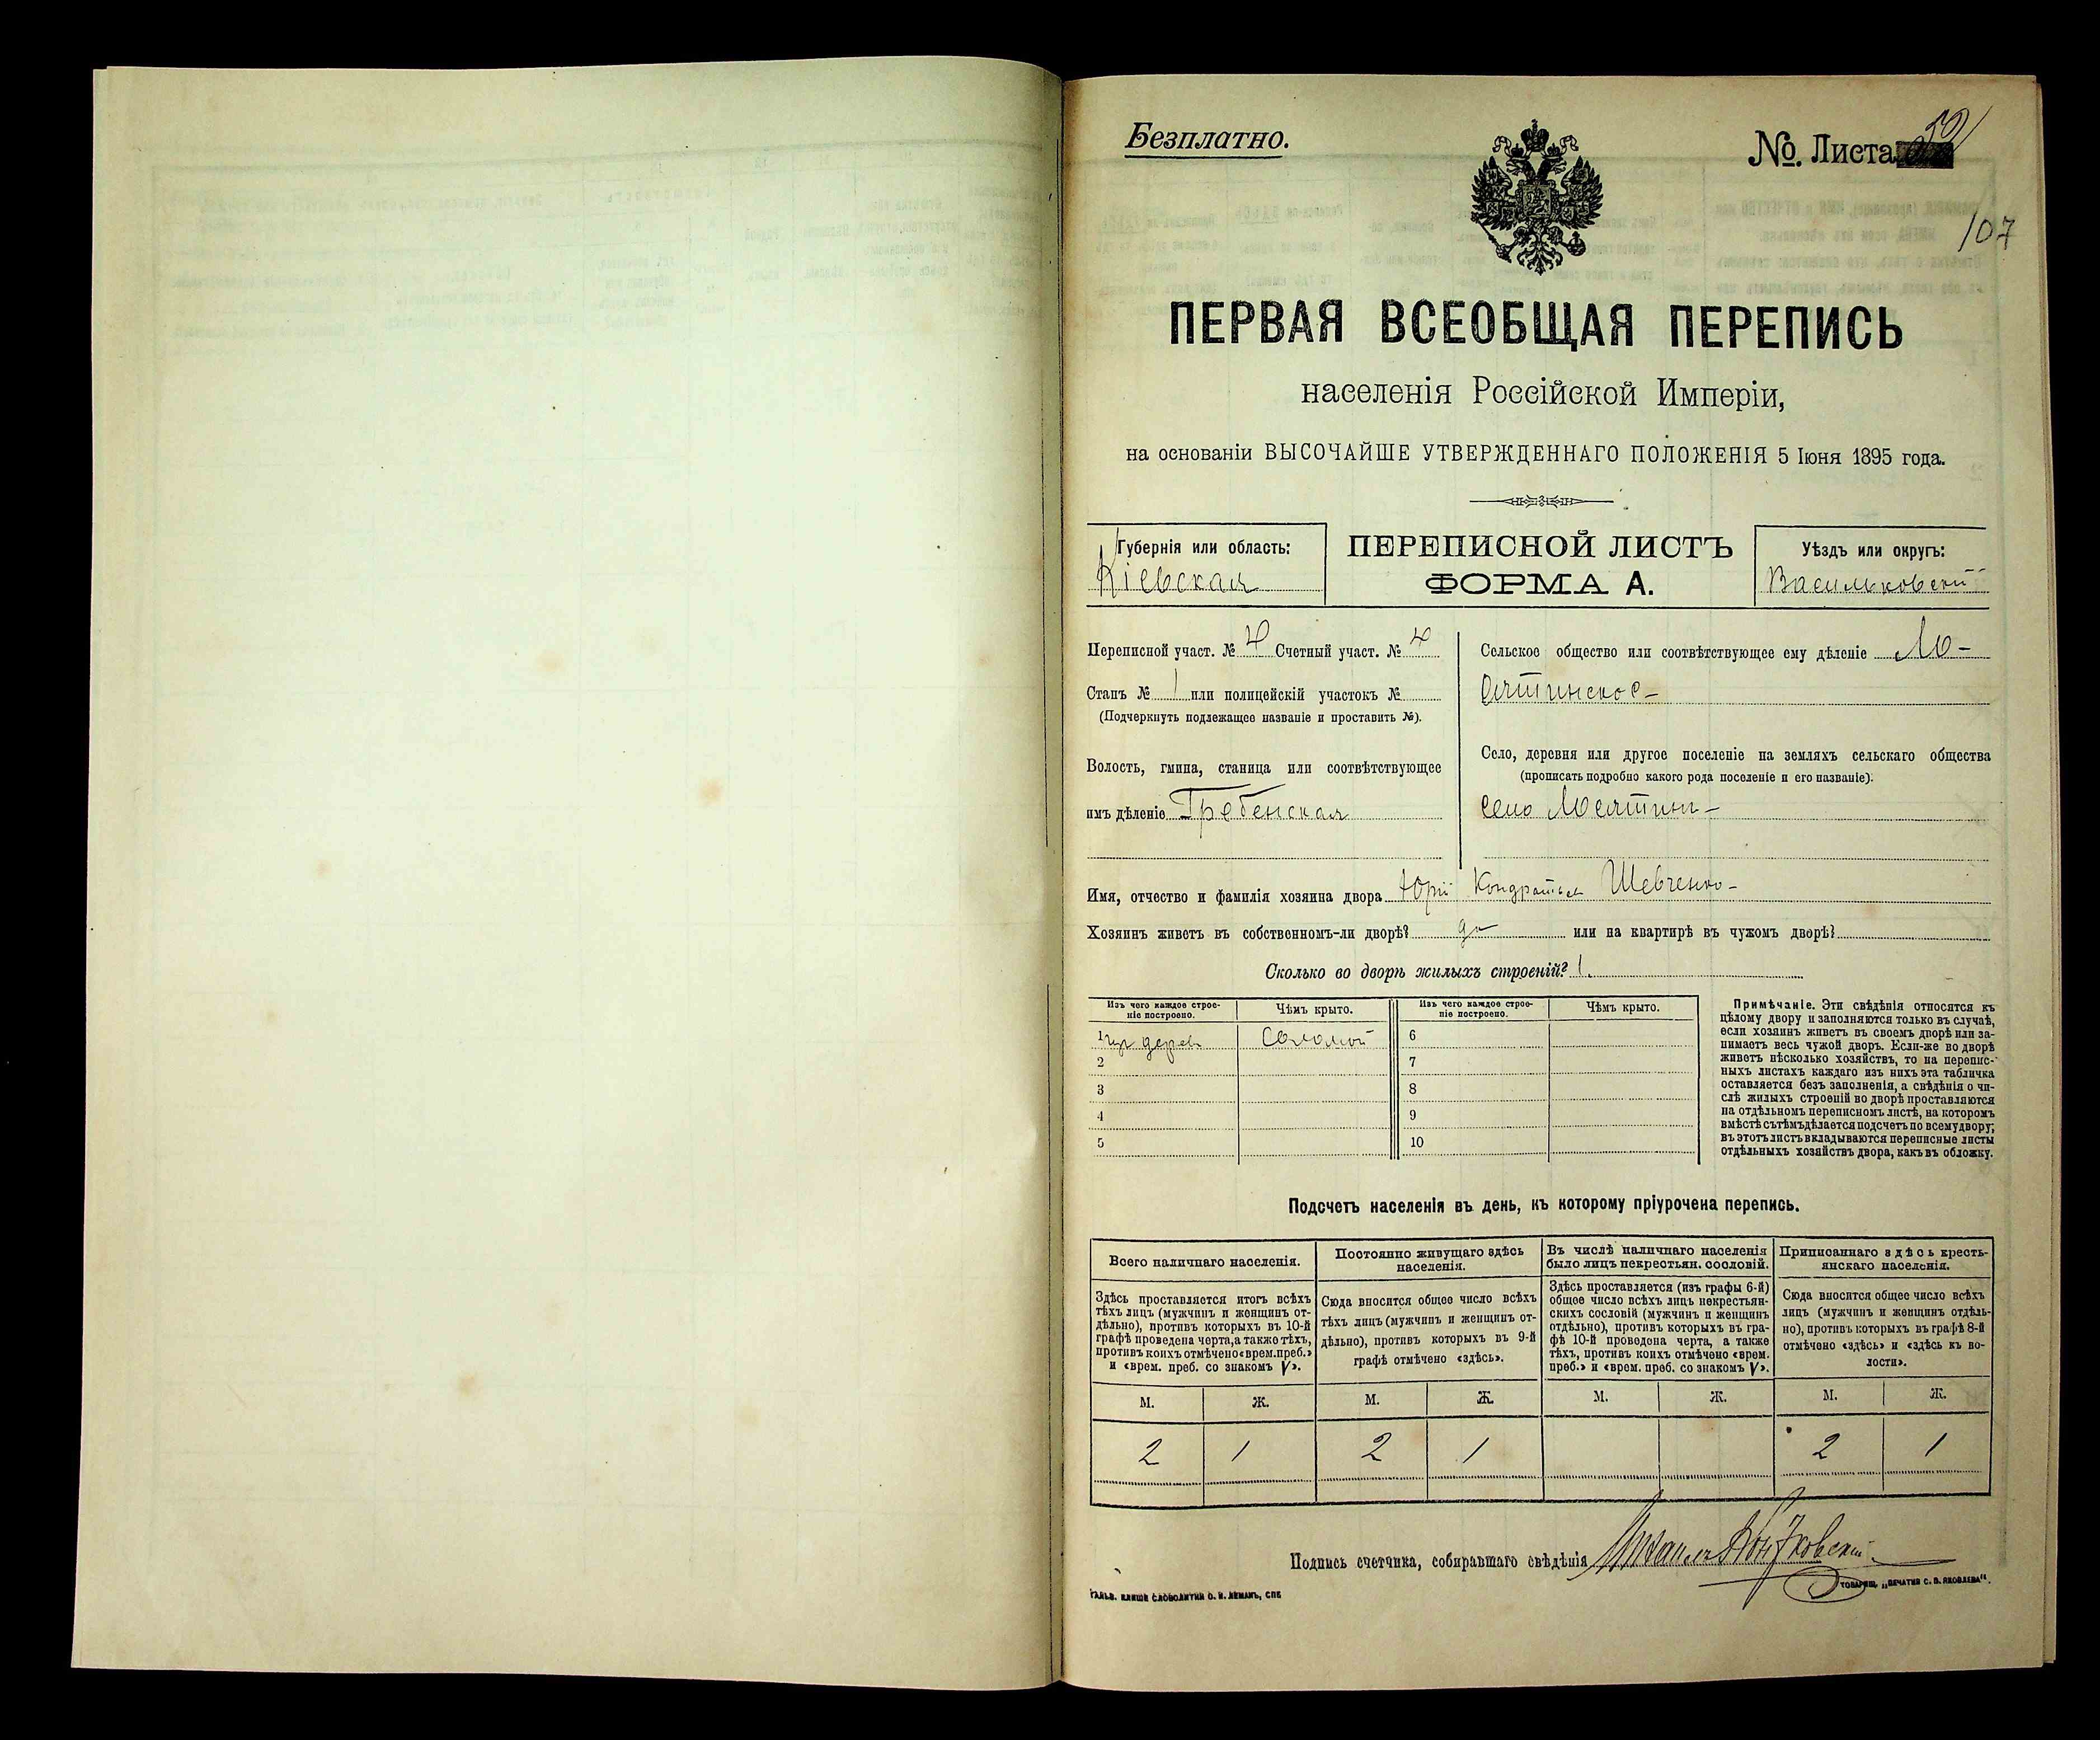 Безплатно.
№. Листа
107
ПЕРВАЯ ВСЕОБЩАЯ ПЕРЕПИСЬ
населенія Россійской Имперіи,
на основаніи ВЫСОЧАЙШЕ УТВЕРЖДЕННАГО ПОЛОЖЕНІЯ 5 Іюня 1895 года.
Губернія или область:
Кіевская
ПЕРЕПИСНОЙ ЛИСТЪ
ФОРМА А.
Уѣздъ или округъ:
Васильковскій
Переписной участ. № 4 Счетный участ. № 4
Станъ № 1 или полицейскій участокъ №
(Подчеркнуть подлежащее названіе и проставить №).
Волость, гмина, станица или соотвѣтствующее
имъ дѣленіе Гребенская
Сельское общество или соотвѣтствующее ему дѣленіе
Село, деревня или другое поселеніе на земляхъ сельскаго общества
(прописать подробно какого рода поселеніе и его названіе):
село
Имя, отчество и фамилія хозяина двора Юрій Кондратьев Шевченко
Хозяинъ живетъ въ собственномъ-ли дворѣ? да или на квартирѣ въ чужомъ дворѣ?
Сколько во дворѣ жилыхъ строеній? 1.
Изъ чего каждое строе-
ніе построено.
Чѣмъ крыто.
Изъ чего каждое строе-
ніе построено.
Чѣмъ крыто.
1 дерев Соломой 6
2 7
3 8
4 9
5 10
Примѣчаніе. Эти свѣдѣнія относятся къ
цѣлому двору и заполняются только въ случаѣ,
если хозяинъ живетъ въ своемъ дворѣ или за-
нимаетъ весь чужой дворъ. Если-же во дворѣ
живетъ нѣсколько хозяйствъ, то на перепис-
ныхъ листахъ каждаго изъ нихъ эта табличка
оставляется безъ заполненія, а свѣдѣнія о чи-
слѣ жилыхъ строеній во дворѣ проставляются
на отдѣльномъ переписномъ листѣ, на которомъ
вмѣстѣ съ тѣмъ дѣлается подсчетъ по всему двору;
въ этотъ листъ вкладываются переписные листы
отдѣльныхъ хозяйствъ двора, какъ въ обложку.
Подсчетъ населенія въ день, къ которому пріурочена перепись.
Всего наличнаго населенія.
Здѣсь проставляется итогъ всѣхъ
тѣхъ лицъ (мужчинъ и женщинъ от-
дѣльно), противъ которыхъ въ 10-й
графѣ проведена черта, а также тѣхъ,
противъ коихъ отмѣчено «врем. преб.»
и «врем. преб. со знакомъ V».
Постоянно живущаго здѣсь
населенія.
Сюда вносится общее число всѣхъ
тѣхъ лицъ (мужчинъ и женщинъ от-
дѣльно), противъ которыхъ въ 9-й
графѣ отмѣчено «здѣсь».
Въ числѣ наличнаго населенія
было лицъ некрестьян. сословій.
Здѣсь проставляется (изъ графы 6-й)
общее число всѣхъ лицъ некрестьян-
скихъ сословій (мужчинъ и женщинъ
отдѣльно), противъ которыхъ въ гра-
фѣ 10-й проведена черта, а также
тѣхъ, противъ коихъ отмѣчено «врем.
преб.» и «врем. преб. со знакомъ V».
Приписаннаго здѣсь кресть-
янскаго населенія.
Сюда вносится общее число всѣхъ
лицъ (мужчинъ и женщинъ отдѣль-
но), противъ которыхъ въ графѣ 8-й
отмѣчено «здѣсь» и «здѣсь къ во-
лости».
М. Ж. М. Ж. М. Ж. М. Ж.
2 1 2 1 2 1
Подпись счетчика, собиравшаго свѣдѣнія
ГАЛЬВ. КЛИШЕ СЛОВОЛИТНИ О. И. ЛЕМАНЪ, СПБ
ТОВАРИЩ. „ПЕЧАТНЯ С. П. ЯКОВЛЕВА".